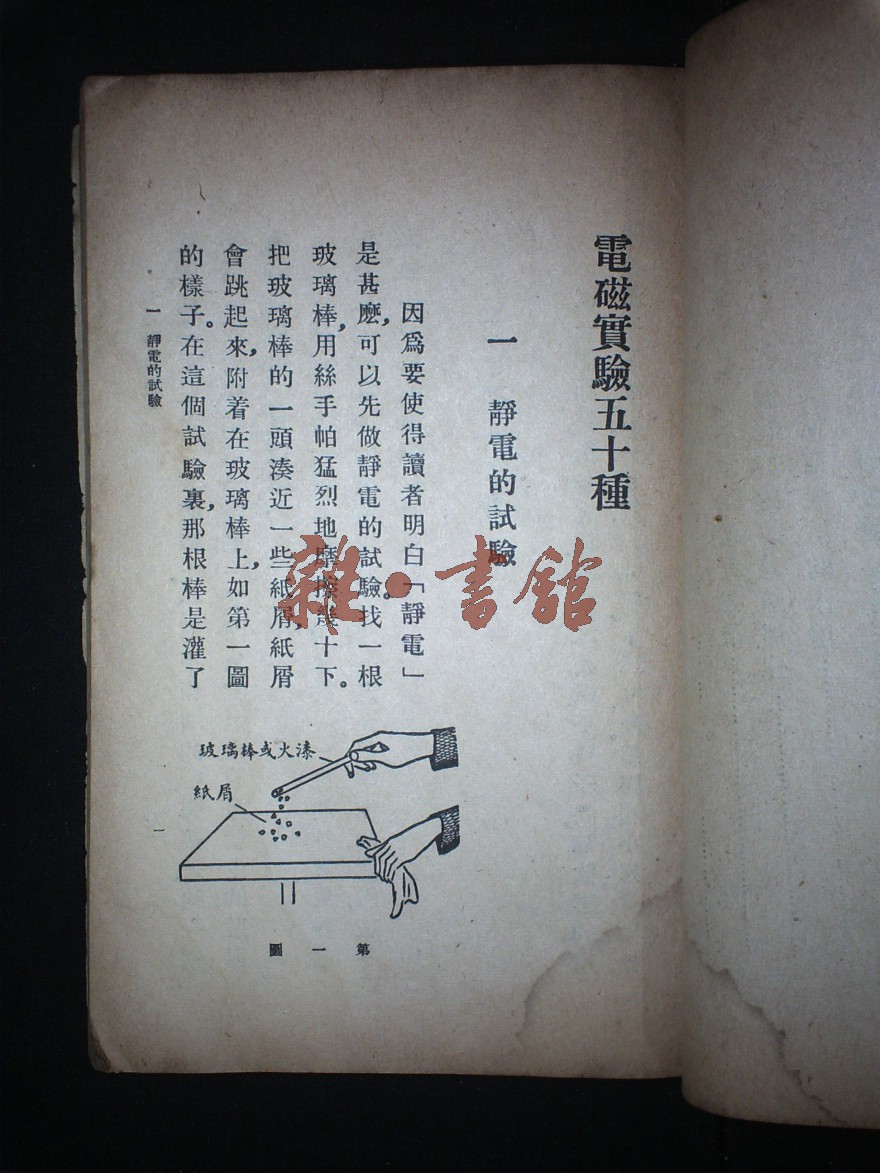 電磁實驗五十種
一 靜電的試驗
因爲要使得讀者明白「靜電」
是甚麽,可以先做靜電的試驗。找一根
玻璃棒,用絲手帕猛烈地摩擦幾十下。
把玻璃棒的一頭湊近一些紙屑,紙屑
會跳起來,附着在玻璃棒上,如第一圖
的樣子。在這個試驗裏,那根棒是灌了
一 靜電的試驗
一
玻璃棒或火漆
紙屑
第一圖
雜·書館